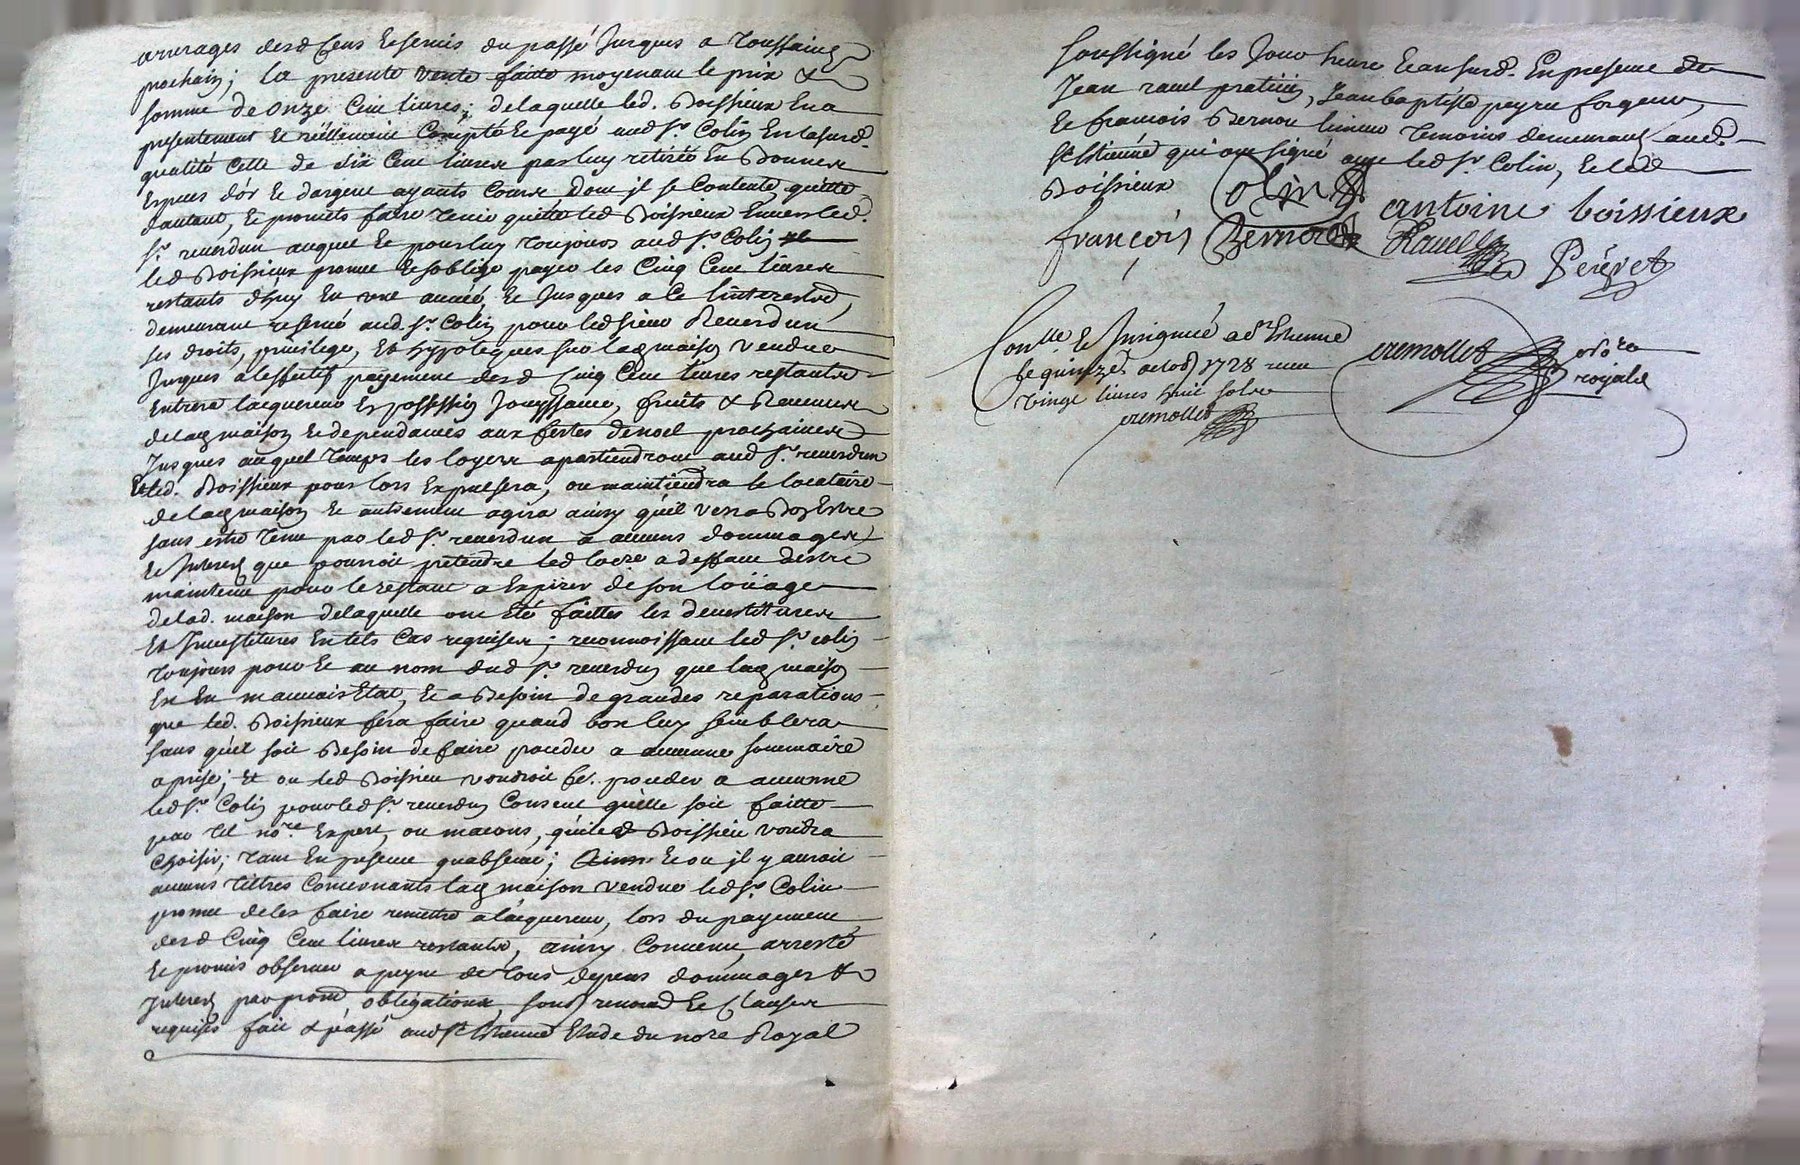 arrerages desd Cens & servis du passé Jusques a Toussaint
prochain; la presente vente faitte moyenant le prix &
somme de onze Cent livres; de laquelle led. Boissieux En a
presentement & réellement Compté & payé aud Sr. Colin En lasusd.
qualité Celle de six Cent livres par luy retirée En Bonnes
Especes d'or & d'argent ayants Cours dont il se Contente, quitte
dautant, & promets faire tenir quitte led Boissieux Envers led.
Sr. reverdun auquel & pour luy toujours aud Sr. Colin
led Boissieux promet & soblige payer les Cinq Cent livres
restants d'huy En une année, & Jusques a Ce l'interest
demeurant reservé aud. Sr. Colin pour led sieur Reverdun
ses droits, privilege, & hypoteques sur lad maison vendue
Jusques a leffectif payement desd Cinq Cent livres restants
Entrera lacquereur En possession Jouyssance, fruits & Revenus
delad maison & dependances aux festes de noel prochaines
Jusques auquel temps les loyers apartiendront aud Sr. reverdun
Et led. Boissieux pour lors Expulsera, ou maintiendra le locataire
delad maison & autrement agira ainsy quil verra Bon Estre
sans estre tenu par led Sr. reverdun a aucuns dommages
& Interets que pourroit pretendre led loc.re a deffaut destre
maintenu pour le restant a Expirer de son loüage
delad. maison de laquelle ont été faittes les devestitures
& Investitures En tels Cas requises; reconnoissant led Sr. colin
toujours pour & au nom dud Sr. reverdun que lad maison
Est En mauvais Etat, & a Besoin de grandes reparations
que led. Boissieux fera faire quand bon luy semblera
sans quil soit Besoin de faire proceder a aucunne sommaire
aprise; Et ou led Boissieu voudroit f.e proceder a aucunne
led Sr. Colin pour led Sr. reverdun Consent quelle soit faitte
par tel no.re Expert, ou macons, que led Boissieu voudra
Choisir; tant En presence quabsence; & ou il y auroit
aucuns tiltres Concernants lad maison vendue led Sr. Colin
promet de les faire remettre a lacquereur, lors du payement
desd Cinq Cent livres restants, ainsy Convenu, arresté
& promis observer a peyne de tous depens dommages &
Interets par prom obligations, soub renond & Clauses
requises fait & passé aud St Etienne Etude du nore Royal
soussigné les Jour heure & an susd. En presence de
Jean ravel praticien, Jean baptiste peyret forgeur,
& francois Bernou limeur temoins demeurants aud.
St Etienne qui ont signé avec led Sr. Colin, & led
Boissieux Colin antoine boissieux
françois Bernou Ravel Peyret
Con.llé & Insinué a St Etienne
le quinze octob 1728 receu
vingt livres huit sols
cremollet
cremollet no.re
royal